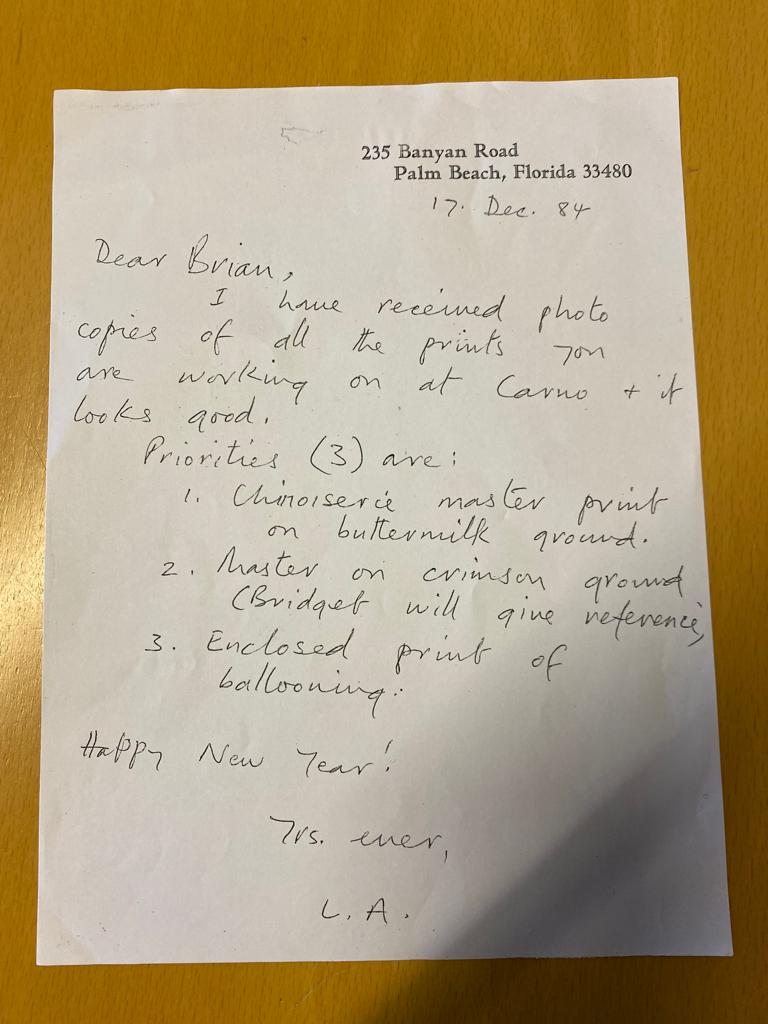 235 Banyan Road
Palm Beach, Florida 33480
17. Dec. 84
Dear Brian,
I have received photo
copies of all the prints you
are working on at Carno + it
looks good.
Priorities (3) are:
1. Chinoiserie master print
on buttermilk ground.
2. Master on crimson ground
(Bridget will give reference)
3. Enclosed print of
ballooning.
Happy New Year!
Yrs. ever,
L. A.